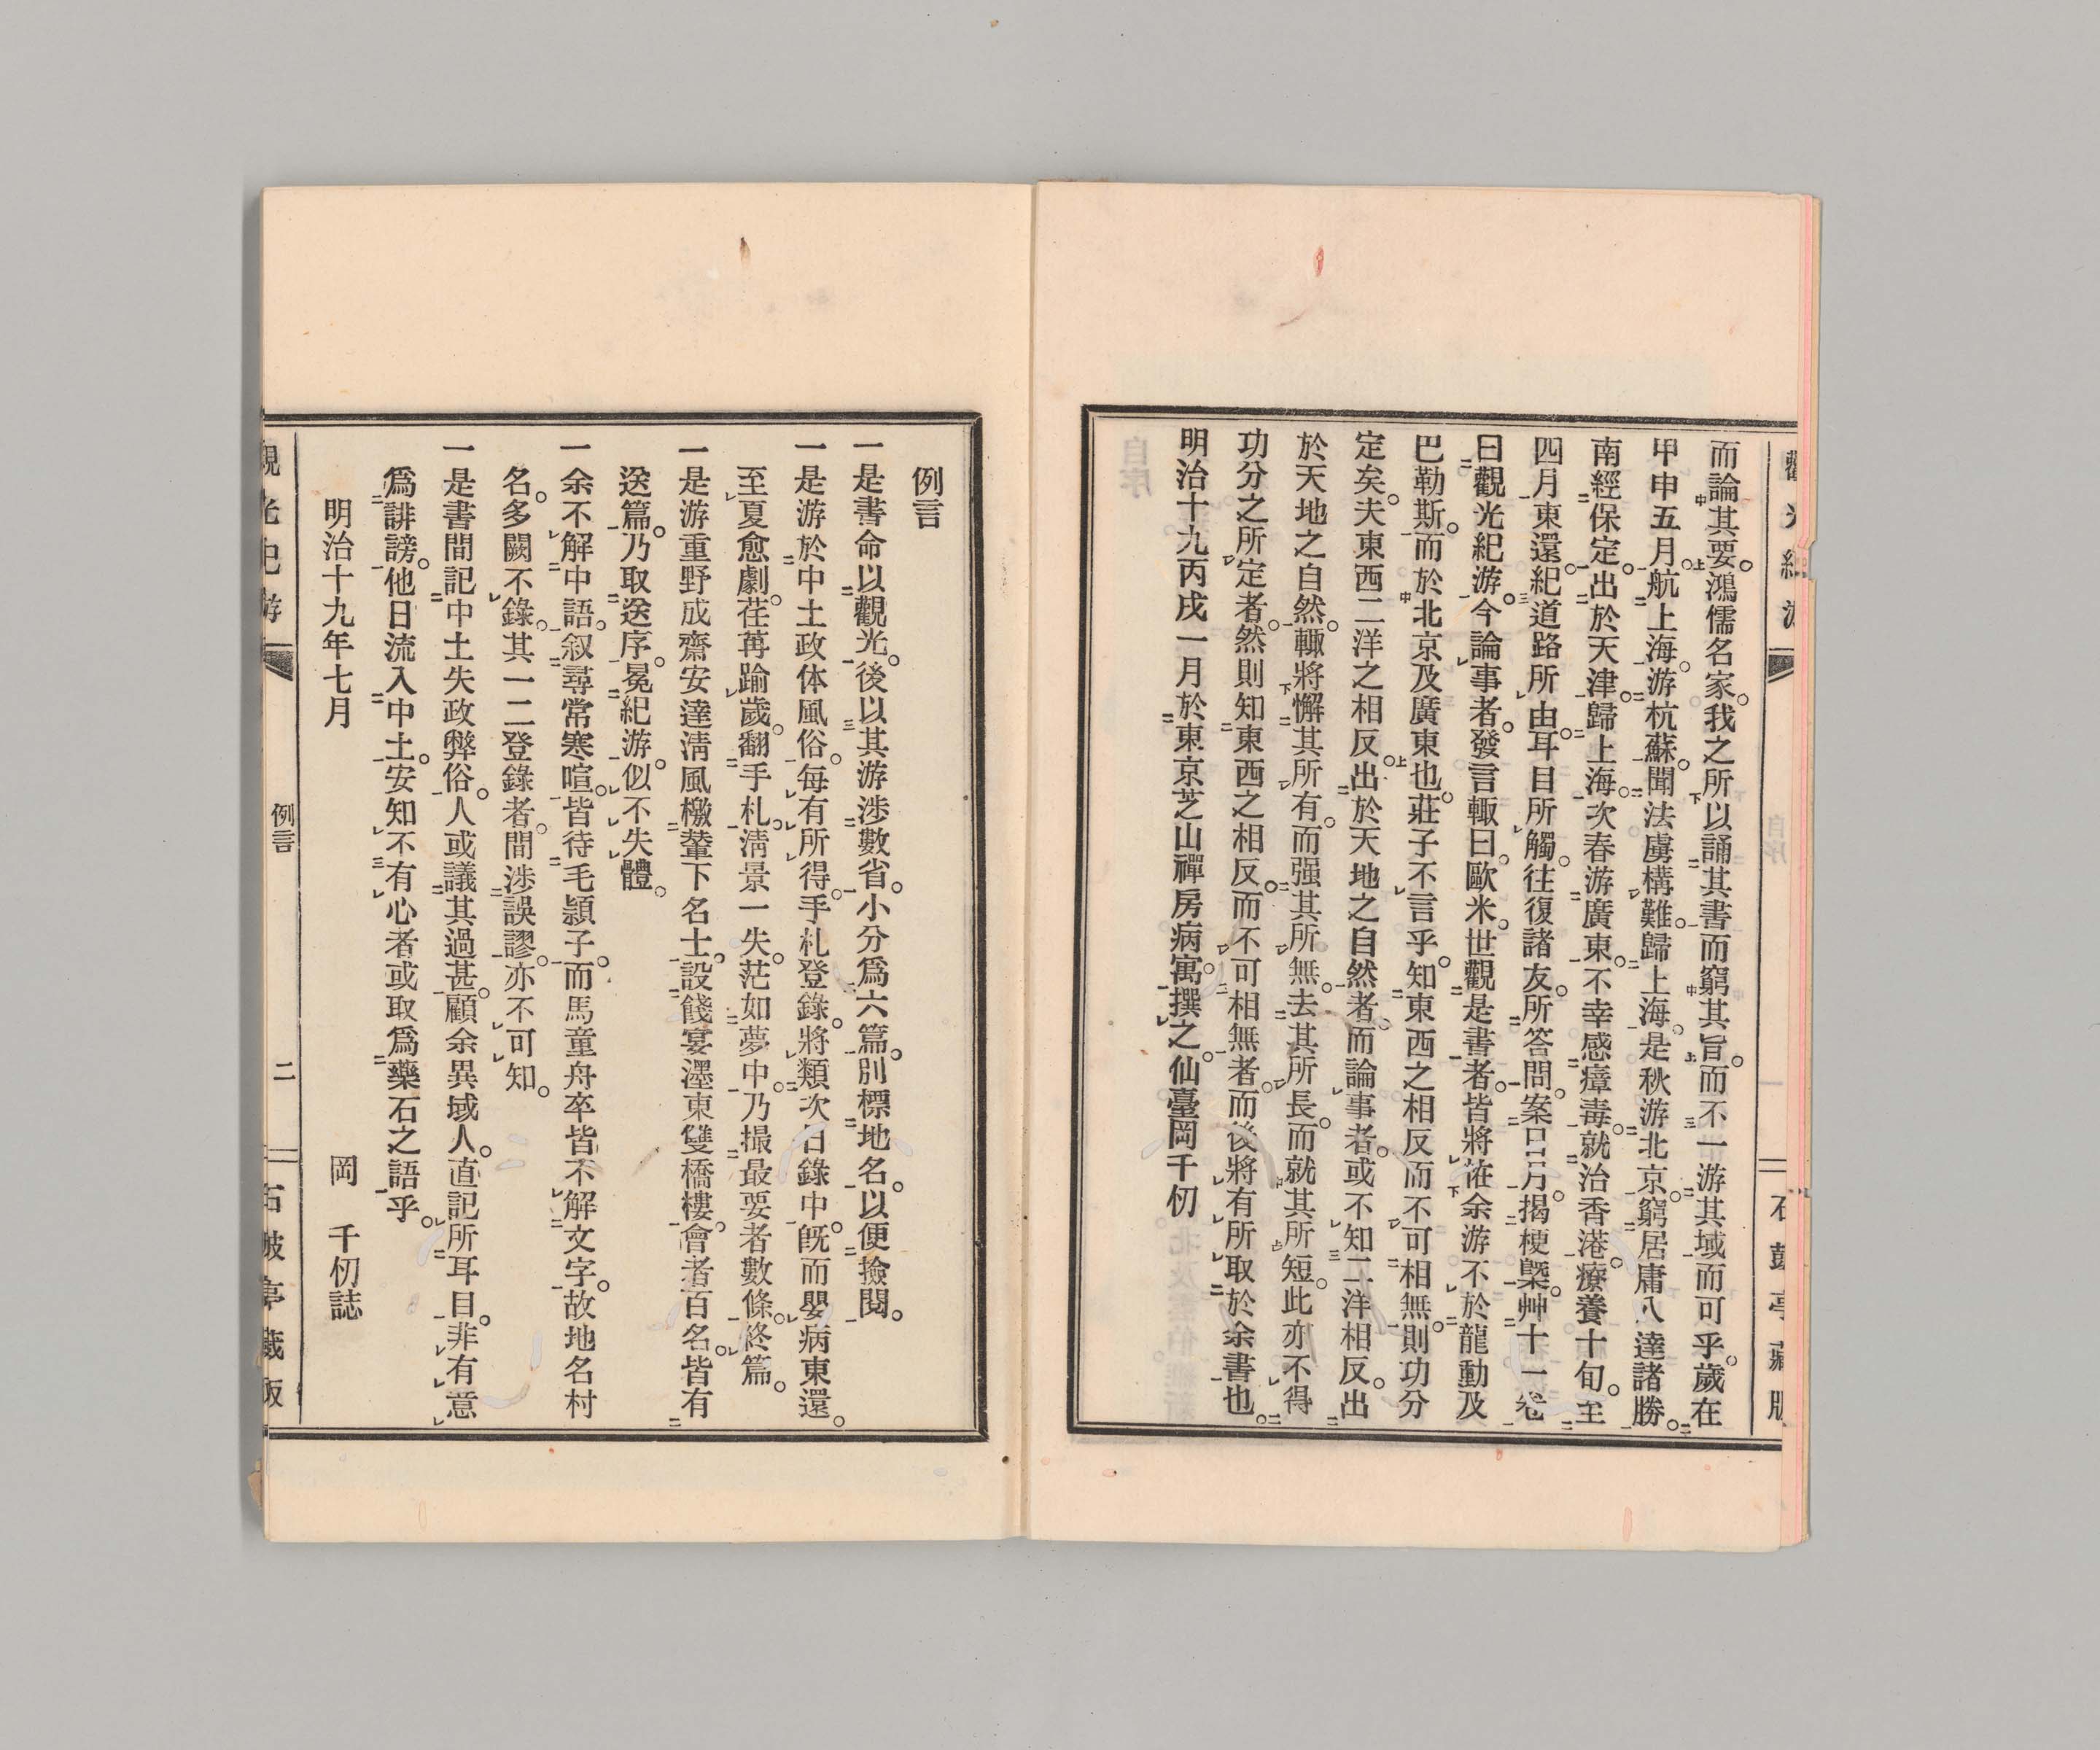 而論其要。鴻儒名家。我之所以誦其書而窮其旨。而不一游其域而可乎。歲在
甲申五月。航上海。游杭蘇。聞法虜構難。歸上海。是秋游北京。窮居庸八達諸勝。
南經保定。出於天津。歸上海。次春游廣東。不幸感瘴毒。就治香港。療養十旬。至
四月東還。紀道路所由。耳目所觸。往復諸友。所答問。案日月。揭梗槩。艸十一卷
曰觀光紀游。今論事者。發言輙曰。歐米。世觀是書者。皆將恠余游不於龍動及
巴勒斯。而於北京及廣東也。莊子不言乎。知東西之相反而不可相無。則功分
定矣。夫東西二洋之相反。出於天地之自然者。而論事者。或不知二洋相反。出
於天地之自然。輙將懈其所有。而强其所無。去其所長。而就其所短。此亦不得
功分之所定者。然則知東西之相反。而不可相無者。而後將有所取於余書也。
明治十九丙戌一月於東京芝山禪房病寓。撰之。仙臺岡千仞
例言
一是書命以觀光。後以其游渉數省。小分爲六篇。別標地名。以便撿閱。
一是游於中土政体風俗。每有所得。手札登錄。將類次日錄中。旣而嬰病東還。
至夏愈劇。荏苒踰歲。翻手札。淸景一失。茫如夢中。乃撮最要者數條。終篇。
一是游重野成齋安達淸風檄輦下名士。設餞宴濹東雙橋樓。會者百名。皆有
送篇。乃取送序。冕紀游。似不失體。
一余不解中語。叙尋常寒暄。皆待毛頴子。而馬童舟卒皆不解文字。故地名村
名。多闕不錄。其一二登錄者。間渉誤謬。亦不可知。
一是書間記中土失政弊俗。人或議其過甚。顧余異域人。直記所耳目。非有意
爲誹謗。他日流入中土。安知不有心者或取爲藥石之語乎。
明治十九年七月
岡　千仞誌
例言
二